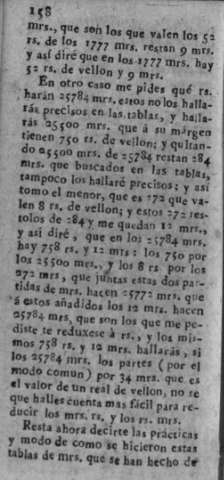 158
mrs., que son los que valen los 52
rs. de los 1777 mrs. restan 9 mrs.
y así diré que en los 1777 mrs. hay
52 rs. de vellon y 9 mrs.
En otro caso me pides qué rs.
harán 25784 mrs. estos no los halla-
rás precisos en las tablas, y halla-
rás 25500 mrs. que á su márgen
tienen 750 rs. de vellon; y quitan-
do 25500 mrs. de 25784 restan 284
mrs. que buscados en las tablas,
tampoco los hallaré precisos; y así
tomo el menor, que es 272 que va-
len 8 rs. de vellon; y estos 272 res-
tolos de 284 y me quedan 12 mrs.,
y así diré, que en los 25784 mrs.
hay 758 rs. y 12 mrs: los 750 por
los 25500 mrs., y los 8 rs. por los
272 mrs., que juntas estas dos par-
tidas de mrs. hacen 25772 mrs. que
á estos añadidos los 12 mrs. hacen
25784 mrs. que son los que me pe-
diste te reduxese á rs., y los mis-
mos 758 rs. y 12 mrs. hallarás, si
los 25784 mrs. los partes (por el
modo comun) por 34 mrs. que es
el valor de un real de vellon, no se
que halles cuenta mas fácil para re-
ducir los mrs. rs. y los rs. mrs.
Resta ahora decirte las prácticas
y modo de como se hicieron estas
tablas de mrs. que se han hecho de